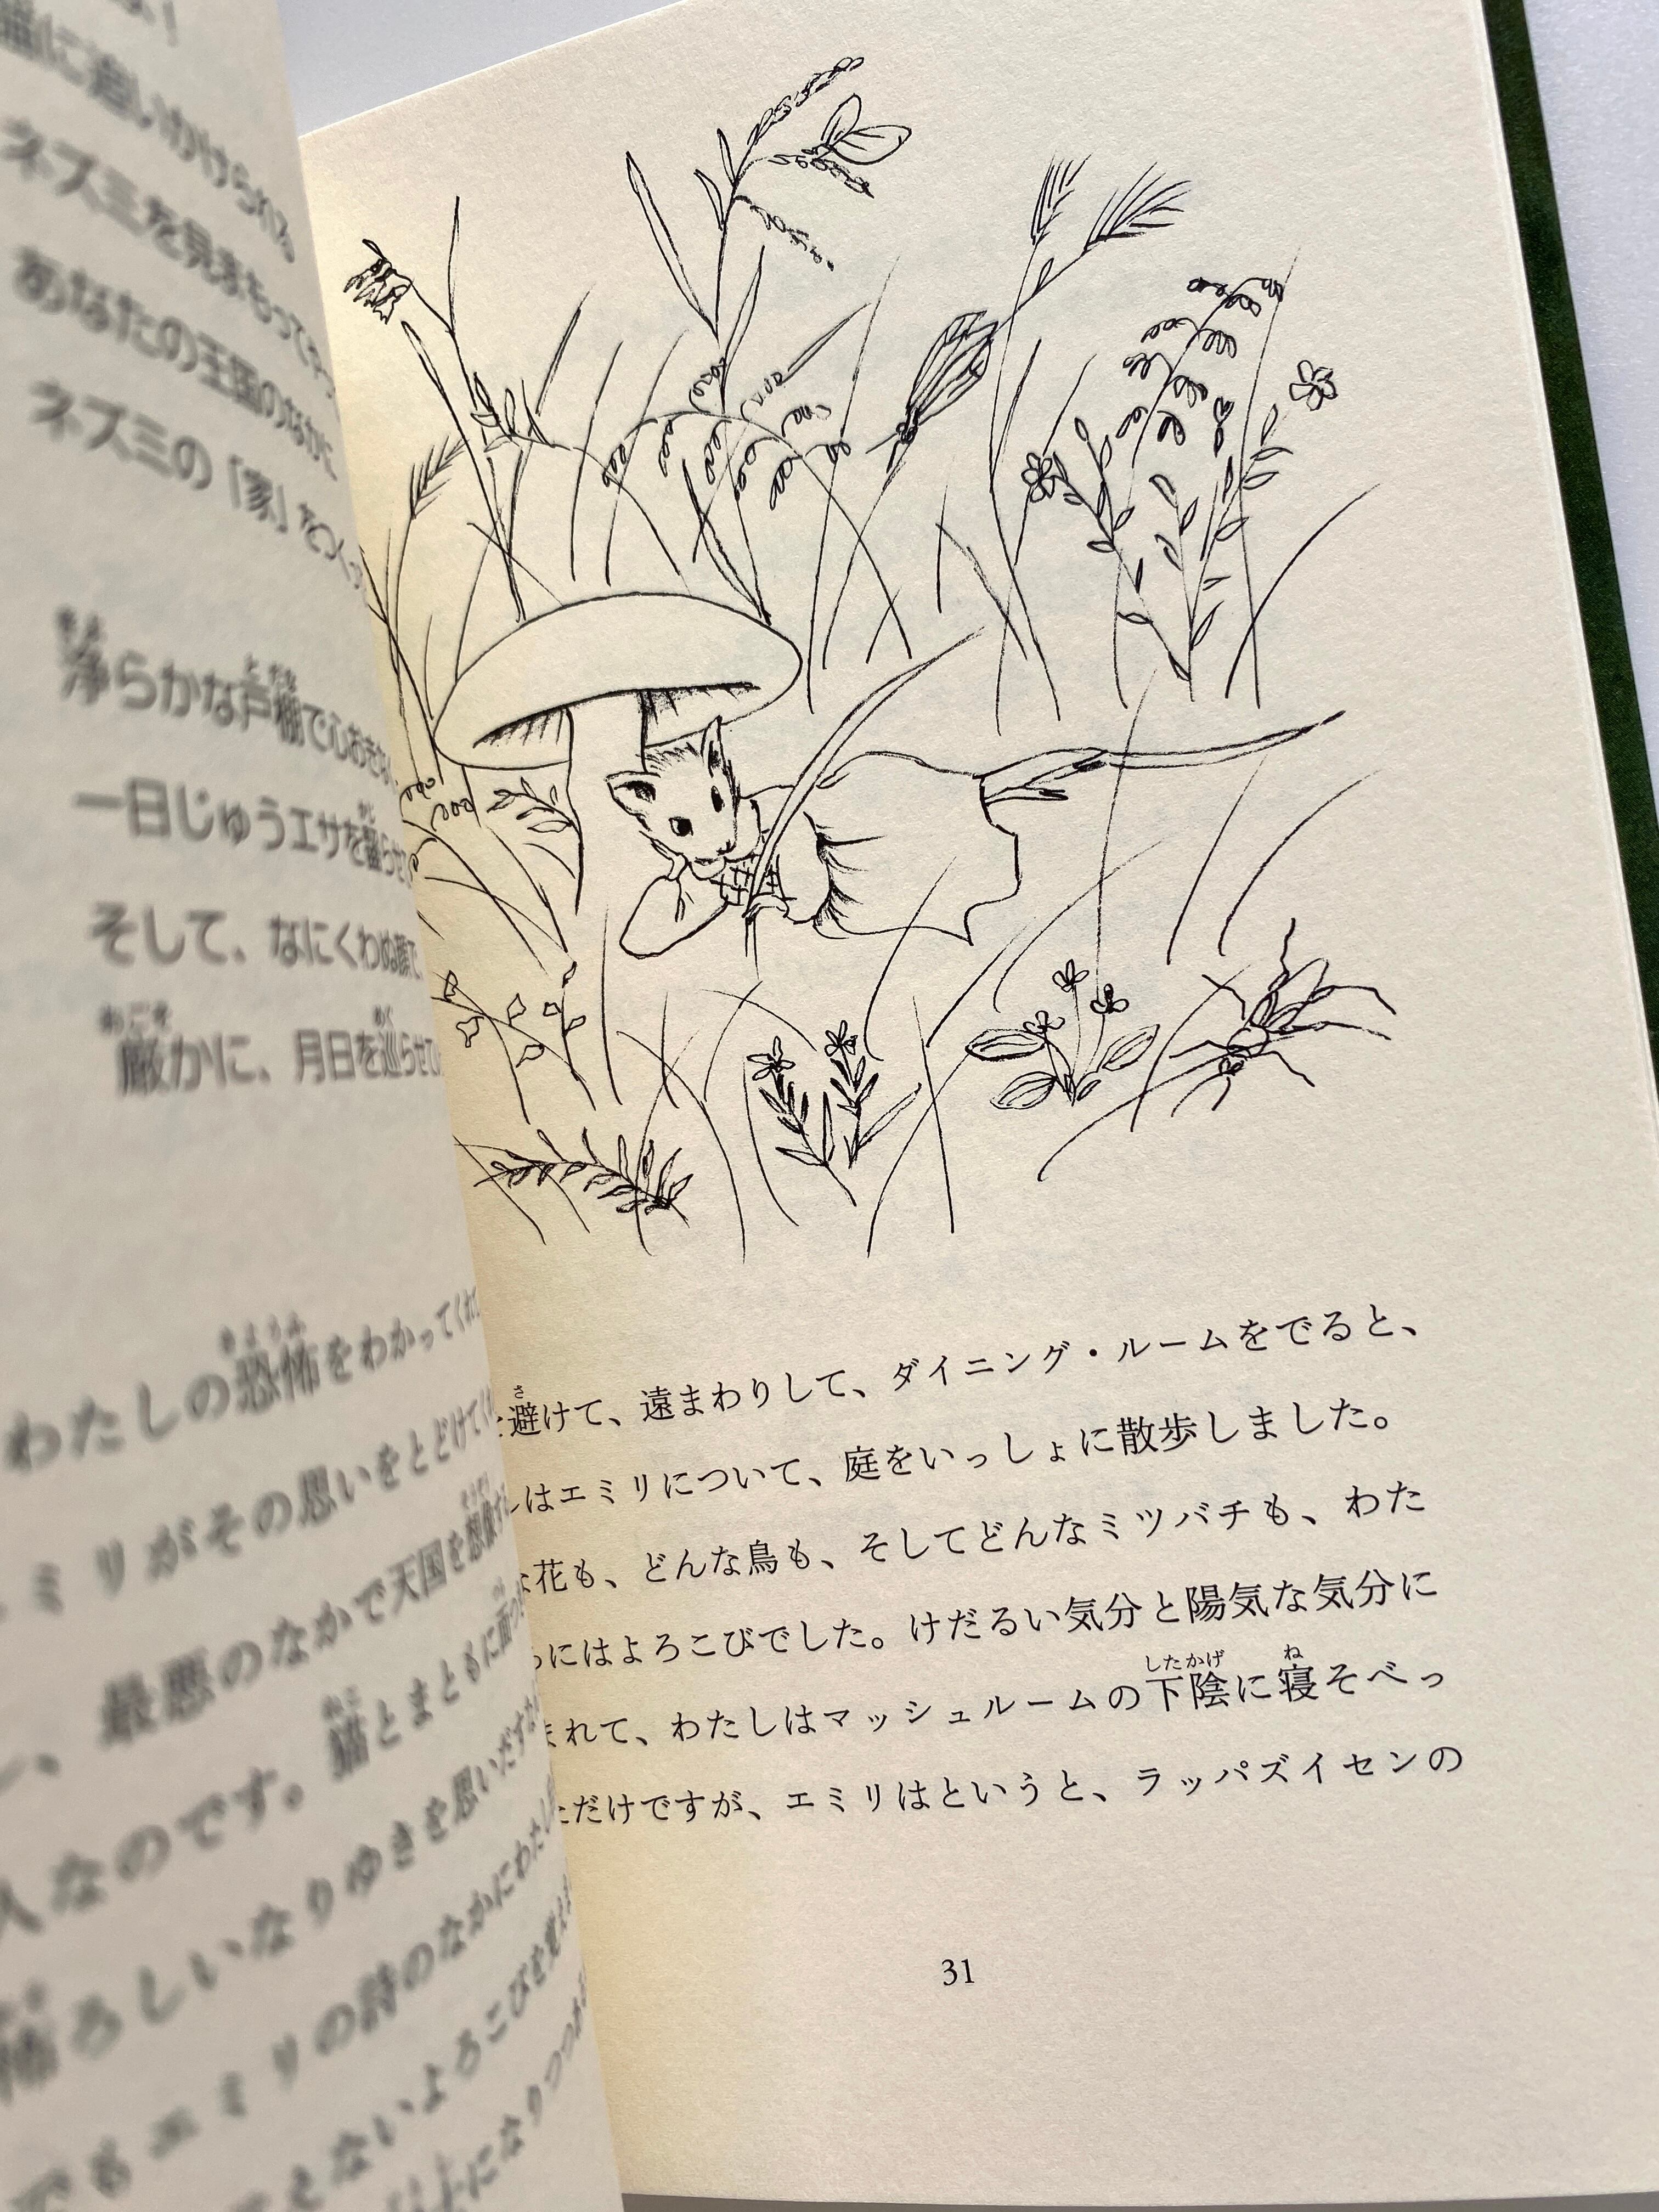 に追いかけられる
ネズミを見まもって
あなたの王国のなかに
ネズミの「家」をつくっ
浄らかな戸棚で心おきな
一日じゅうエサを齧らせ
そして、なにくわぬ顔で、
厳かに、月日を巡らせ
わたしの恐怖をわかってくれ
ミリがその思いをとどけてく
最悪のなかで天国を想像す
人なのです。猫とまともに面
ろしいなりゆきを思いだす
でもエミリの詩のなかにわたし
えないよろこびを覚え
になりつつ
避けて、遠まわりして、ダイニング・ルームをでると、
はエミリについて、庭をいっしょに散歩しました。
花も、どんな鳥も、そしてどんなミツバチも、わた
にはよろこびでした。けだるい気分と陽気な気分に
まれて、わたしはマッシュルームの下陰に寝そべっ
ただけですが、エミリはというと、ラッパズイセンの
31